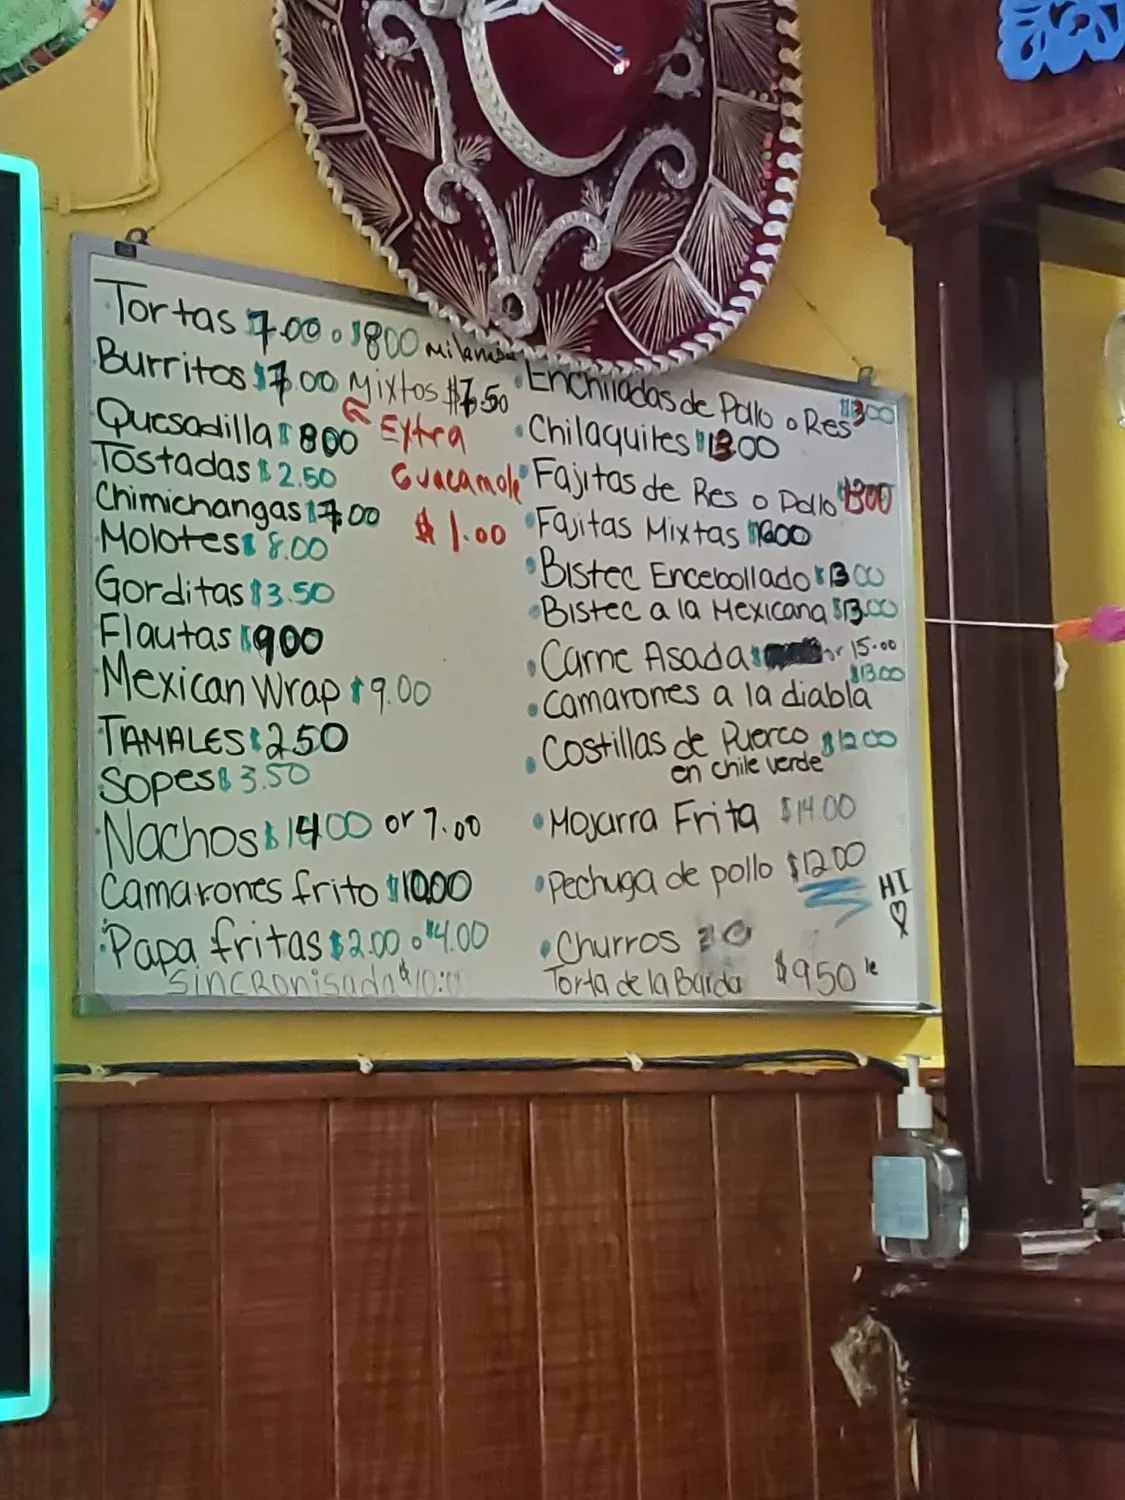 Tortas $7.00 o $800 Milanesa
Burritos $7.00 Mixtos $7.50
Quesadilla $800 Extra
Tostadas $2.50 Guacamole
Chimichangas $7.00 $1.00
Molotes $8.00
Gorditas $3.50
Flautas $900
Mexican Wrap $9.00
TAMALES $250
Sopes $3.50
Nachos $1400 or 7.00
Camarones frito $1000
Papa fritas $2.00 o $4.00
Sincronisada $10:00
Enchiladas de Pollo o Res $1300
Chilaquiles $13.00
Fajitas de Res o Pollo $1300
Fajitas Mixtas $1600
Bistec Encebollado $13 00
Bistec a la Mexicana $13.00
Carne Asada $ or 15.00
Camarones a la diabla $13.00
Costillas de Puerco $12 00
en chile verde
Mojarra Frita $14.00
Pechuga de pollo $12.00
HI
Churros
Torta de la Barda $950